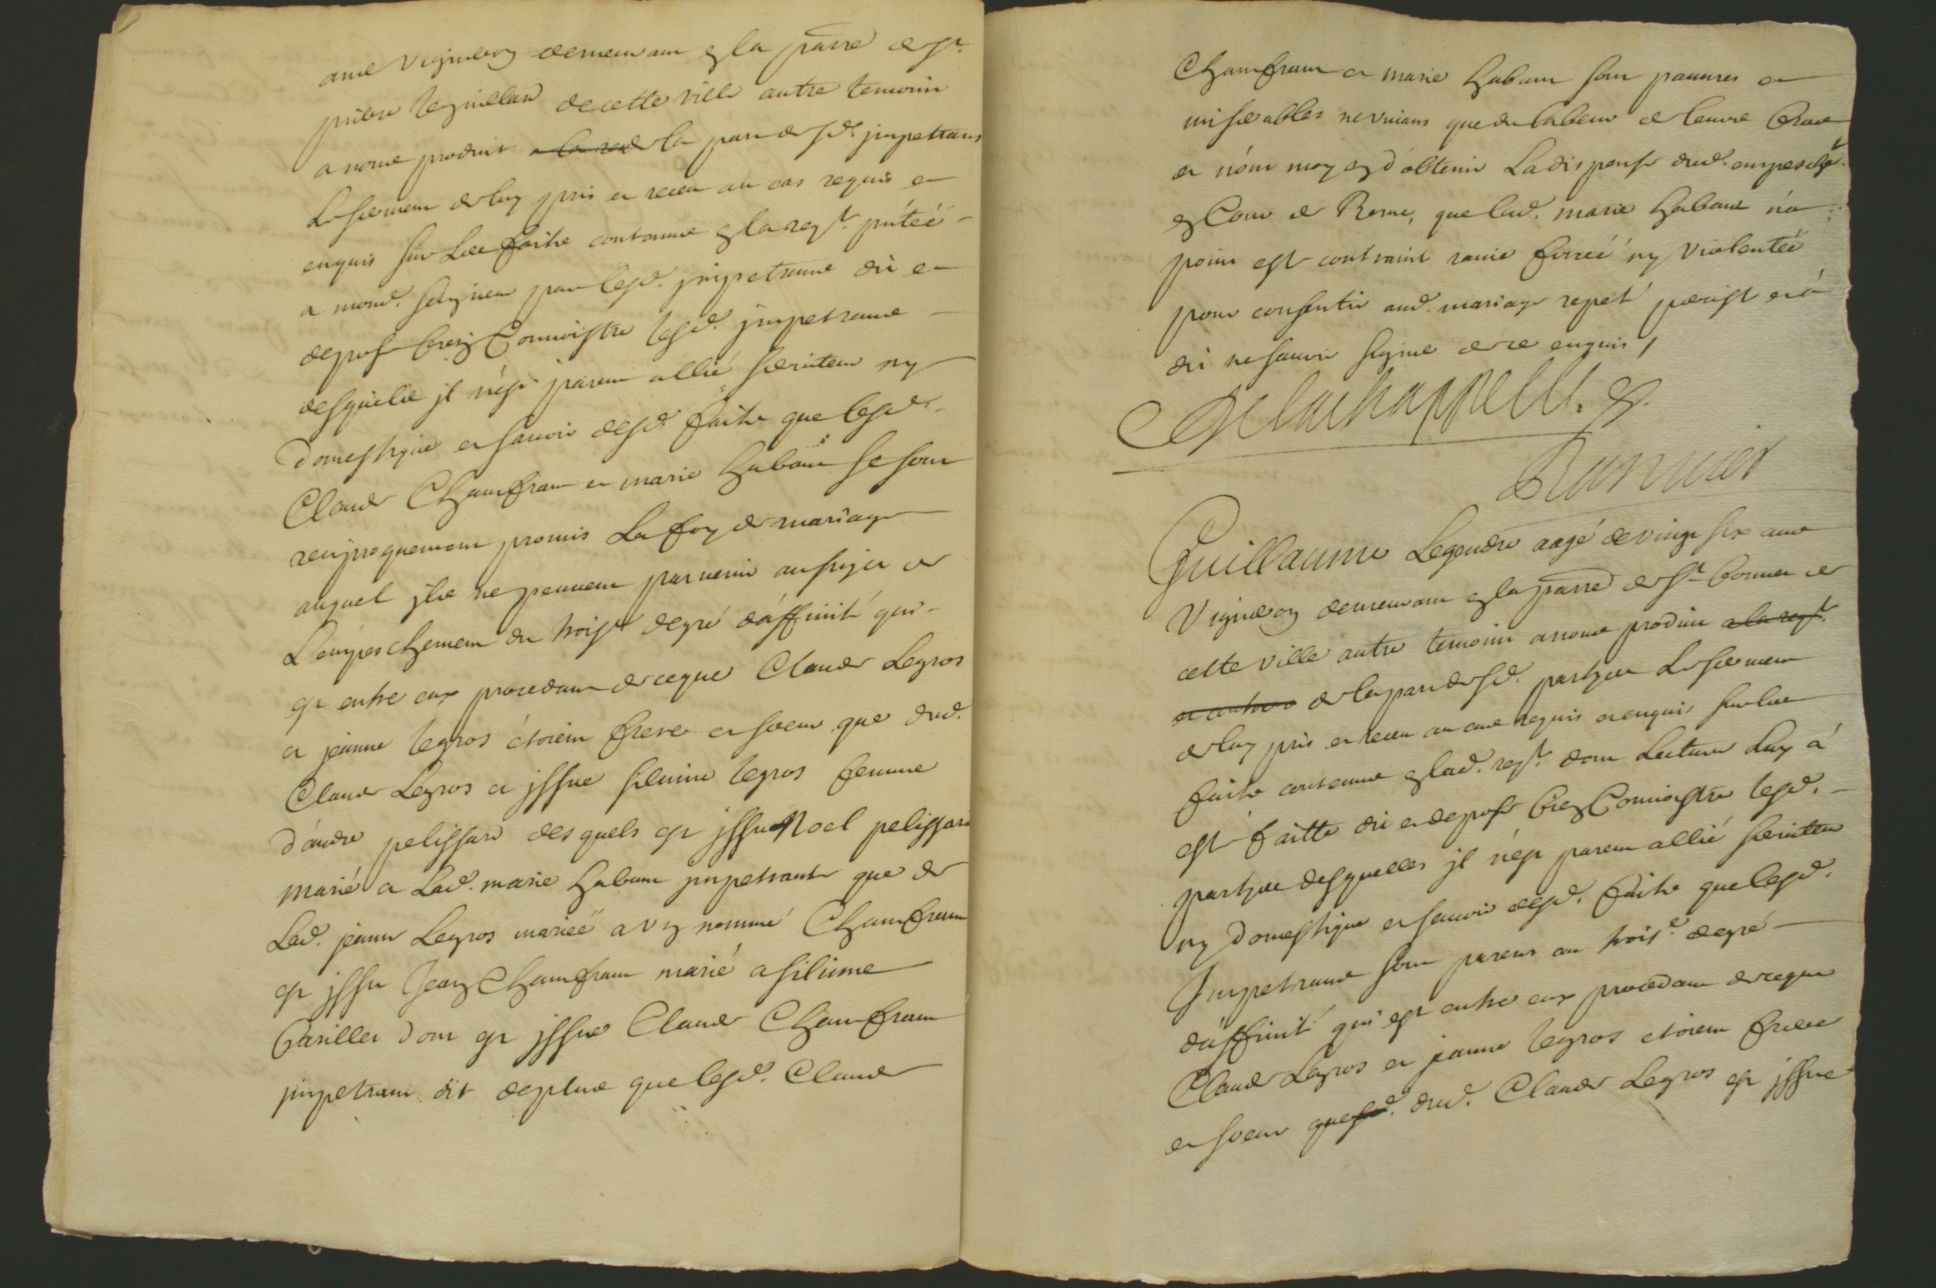 ans vigneron demeurant en la parre de St
pierre le guillard de cette ville autre temoin
a nous produit a la red de la part desd. impetrans
Le serment de luy pris et receu au cas requis et
enquis sur Les faits contenus en la reqte. pntée
a mond. seigneur par lesd. jmpetrans dit et
depose bien Connoistre lesd. jmpetrans
desquels il n'est parent allié serviteur ny
Domestique et sauoir desd. faits que lesd.
Claude Chamfrant et marie habaut se sont
reciproquement promis La foy de mariage
auquel jls ne peuuent paruenir au sujet de
L'empeschement du trois.e degré d'affinité qui
est entre eux procedant de ce que Claude Legros
et jeanne legros étoient frere et soeur que dud.
Claude Legros est jssue silvine legros femme
d'andre pelissard desquels est jssu Noel pelissard
marié a Lad. marie habaut jmpetrante que de
Lad. jeanne Legros mariée a un nommé Chamfrant
est jssu Jean Chamfrant marié a silvine
dont est jssu Claude Chamfrant
jmpetrant. dit de plus que lesd. Claude
Chamfrant et marie habaut sont pauures et
miserables ne viuans que du labeur de leurs bras
et n'ont moyen d'obtenir La dispense dud. empeschet.
en Cour de Rome, que lad. marie habaut n'a
point esté contraint rauie forcée ny violentée
pour consentir aud. mariage repeté persist et a
dit ne sauoir signer de ce enquis,
Delachappelle.
Guillaume Legendre aagé de vingt six ans
Vigneron demeurant en la parre de St Bonnet de
cette ville autre temoin a nous produit a la reqt.
et autres de la part desd. parties Le serment
de luy pris et receu au cas requis et enquis sur les
faits contenus en lad. reqt. dont Lecture Luy a
esté faitte dit et depose bien Connoistre lesd.
parties desquelles il n'est parent allié seruiteur
ny Domestique et sauoir desd. faits que lesd.
Jmpetrans sont parens au trois.e degré
d'affinité qui est entre eux procedant de ce que
Claude Legros et jeanne legros etoient frere
et soeur que sd. dud. Claude Legros est jssue